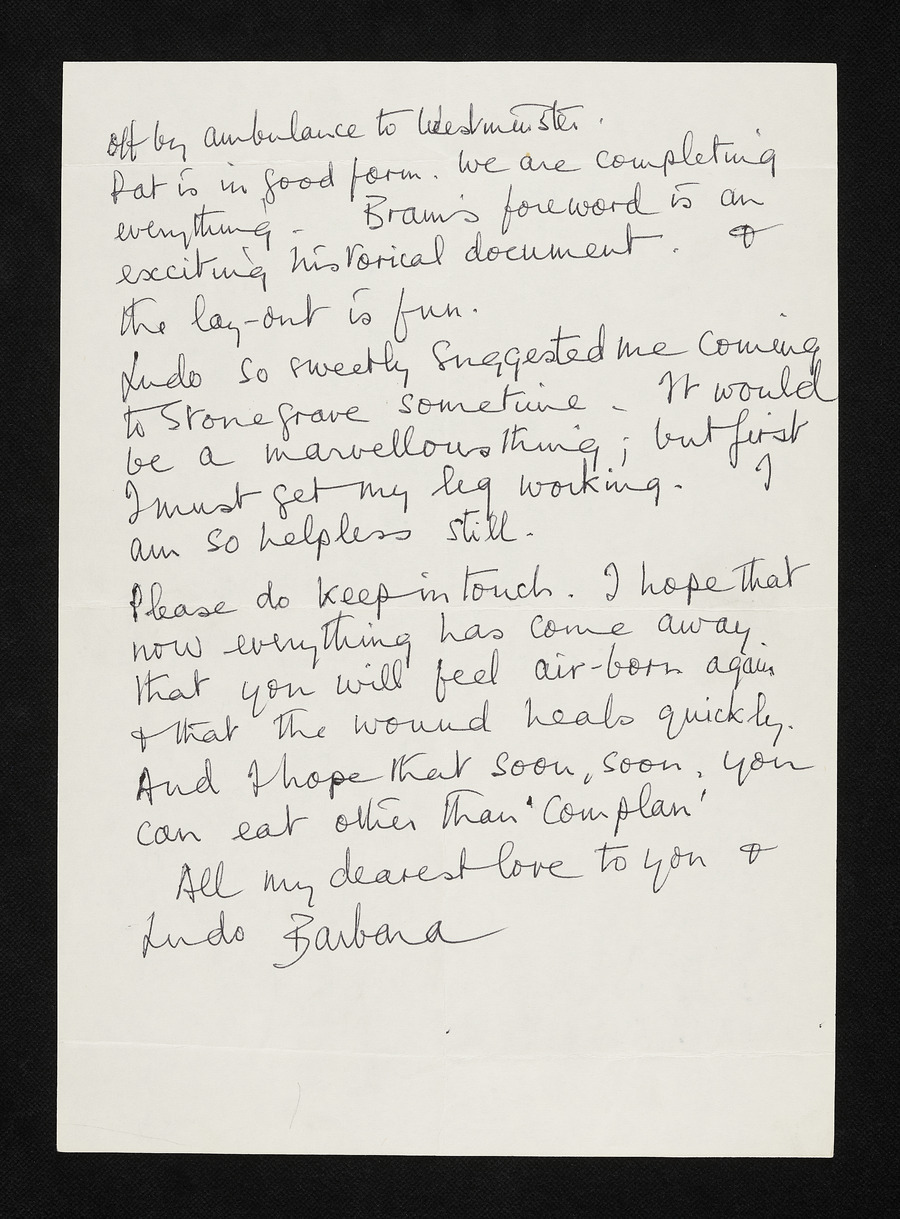 off by ambulance to Westminster.
Pat is in good form. We are completing
everything. Bram's foreword is an
exciting historical document. &
the lay-out is fun.
Ludo so sweetly suggested me coming
to Stonegrave sometime. It would
be a marvellous thing; but first
I must get my leg working. I
am so helpless still.
Please do keep in touch. I hope that
now everything has come away
that you will feel air-born again
& that the wound heals quickly.
And I hope that soon, soon, you
can eat other than 'Complan'
All my dearest love to you &
Ludo Barbara